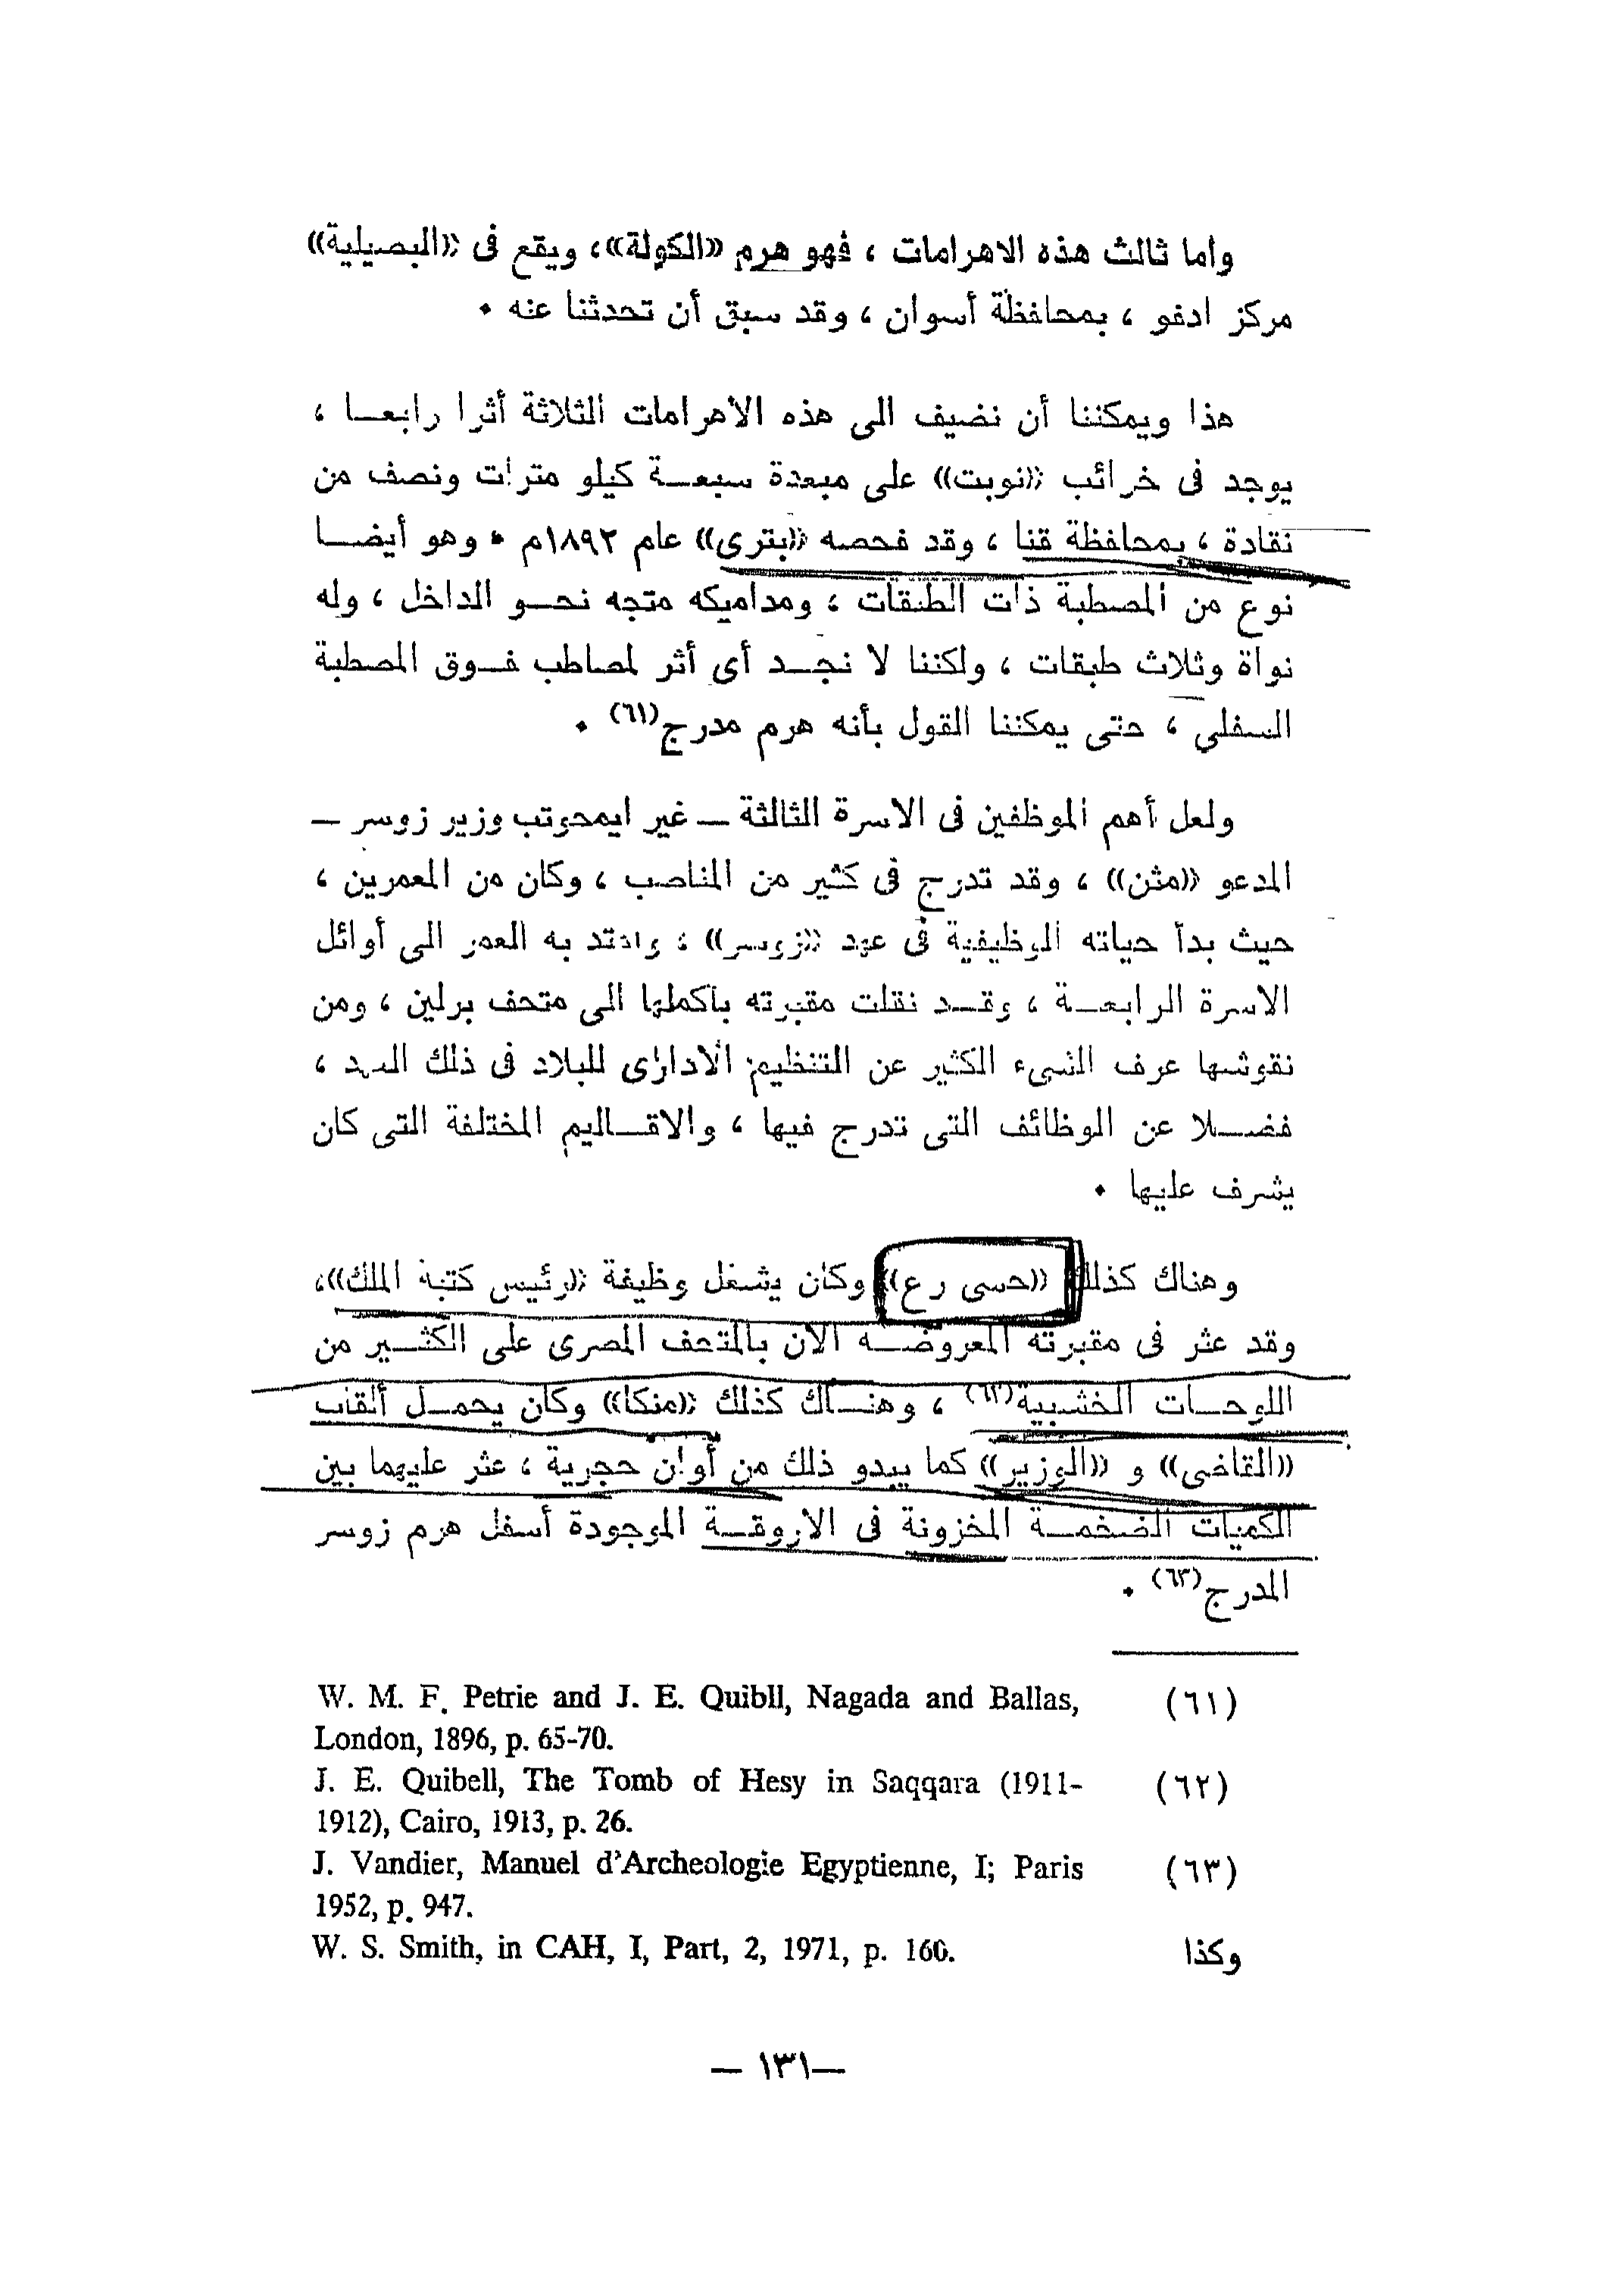 واما ثالث هذه الاهرامات ، فهو هرم «الكولة»، ويقع فى «البصيلية»
مركز ادفو ، بمحافظة أسوان ، وقد سبق أن تحدثنا عنه ٠
هذا ويمكننا أن نضيف الى هذه الاهرامات الثلاثة أثرا رابعا ،
يوجد فى خرائب «نوبت» على مبعدة سبعة كيلو مترات ونصف من
نقادة ، بمحافظة قنا ، وقد فحصه «بترى» عام ١٨٩٢م ٠ وهو أيضا
نوع من المصطبة ذات الطبقات ، ومداميكه متجه نحو الداخل ، وله
نواة وثلاث طبقات ، ولكننا لا نجد أى أثر لمصاطب فوق المصطبة
السفلى ، حتى يمكننا القول بأنه هرم مدرج(٦١) ٠
ولعل أهم الموظفين فى الاسرة الثالثة — غير ايمحوتب وزير زوسر —
المدعو «مثن» ، وقد تدرج فى كثير من المناصب ، وكان من المعمرين ،
حيث بدأ حياته الوظيفية فى عهد «زوسر» ، وامتد به العمر الى أوائل
الاسرة الرابعة ، وقد نقلت مقبرته بأكملها الى متحف برلين ، ومن
نقوشها عرف الشىء الكثير عن التنظيم الادارى للبلاد فى ذلك العهد ،
فضلا عن الوظائف التى تدرج فيها ، والاقاليم المختلفة التى كان
يشرف عليها ٠
وهناك كذلك «حسى رع» وكان يشغل وظيفة «رئيس كتبة الملك»،
وقد عثر فى مقبرته المعروضة الآن بالمتحف المصرى على الكثير من
اللوحات الخشبية(٦٢) ، وهناك كذلك «منكا» وكان يحمل ألقاب
«القاضى» و «الوزير» كما يبدو ذلك من أوان حجرية ، عثر عليهما بين
الكميات الضخمة المخزونة فى الاروقة الموجودة أسفل هرم زوسر
المدرج(٦٣) ٠
(٦١) W. M. F. Petrie and J. E. Quibll, Nagada and Ballas,
London, 1896, p. 65-70.
(٦٢) J. E. Quibell, The Tomb of Hesy in Saqqara (1911-
1912), Cairo, 1913, p. 26.
(٦٣) J. Vandier, Manuel d'Archeologie Egyptienne, I; Paris
1952, p. 947.
وكذا W. S. Smith, in CAH, I, Part, 2, 1971, p. 160.
— ١٣١—